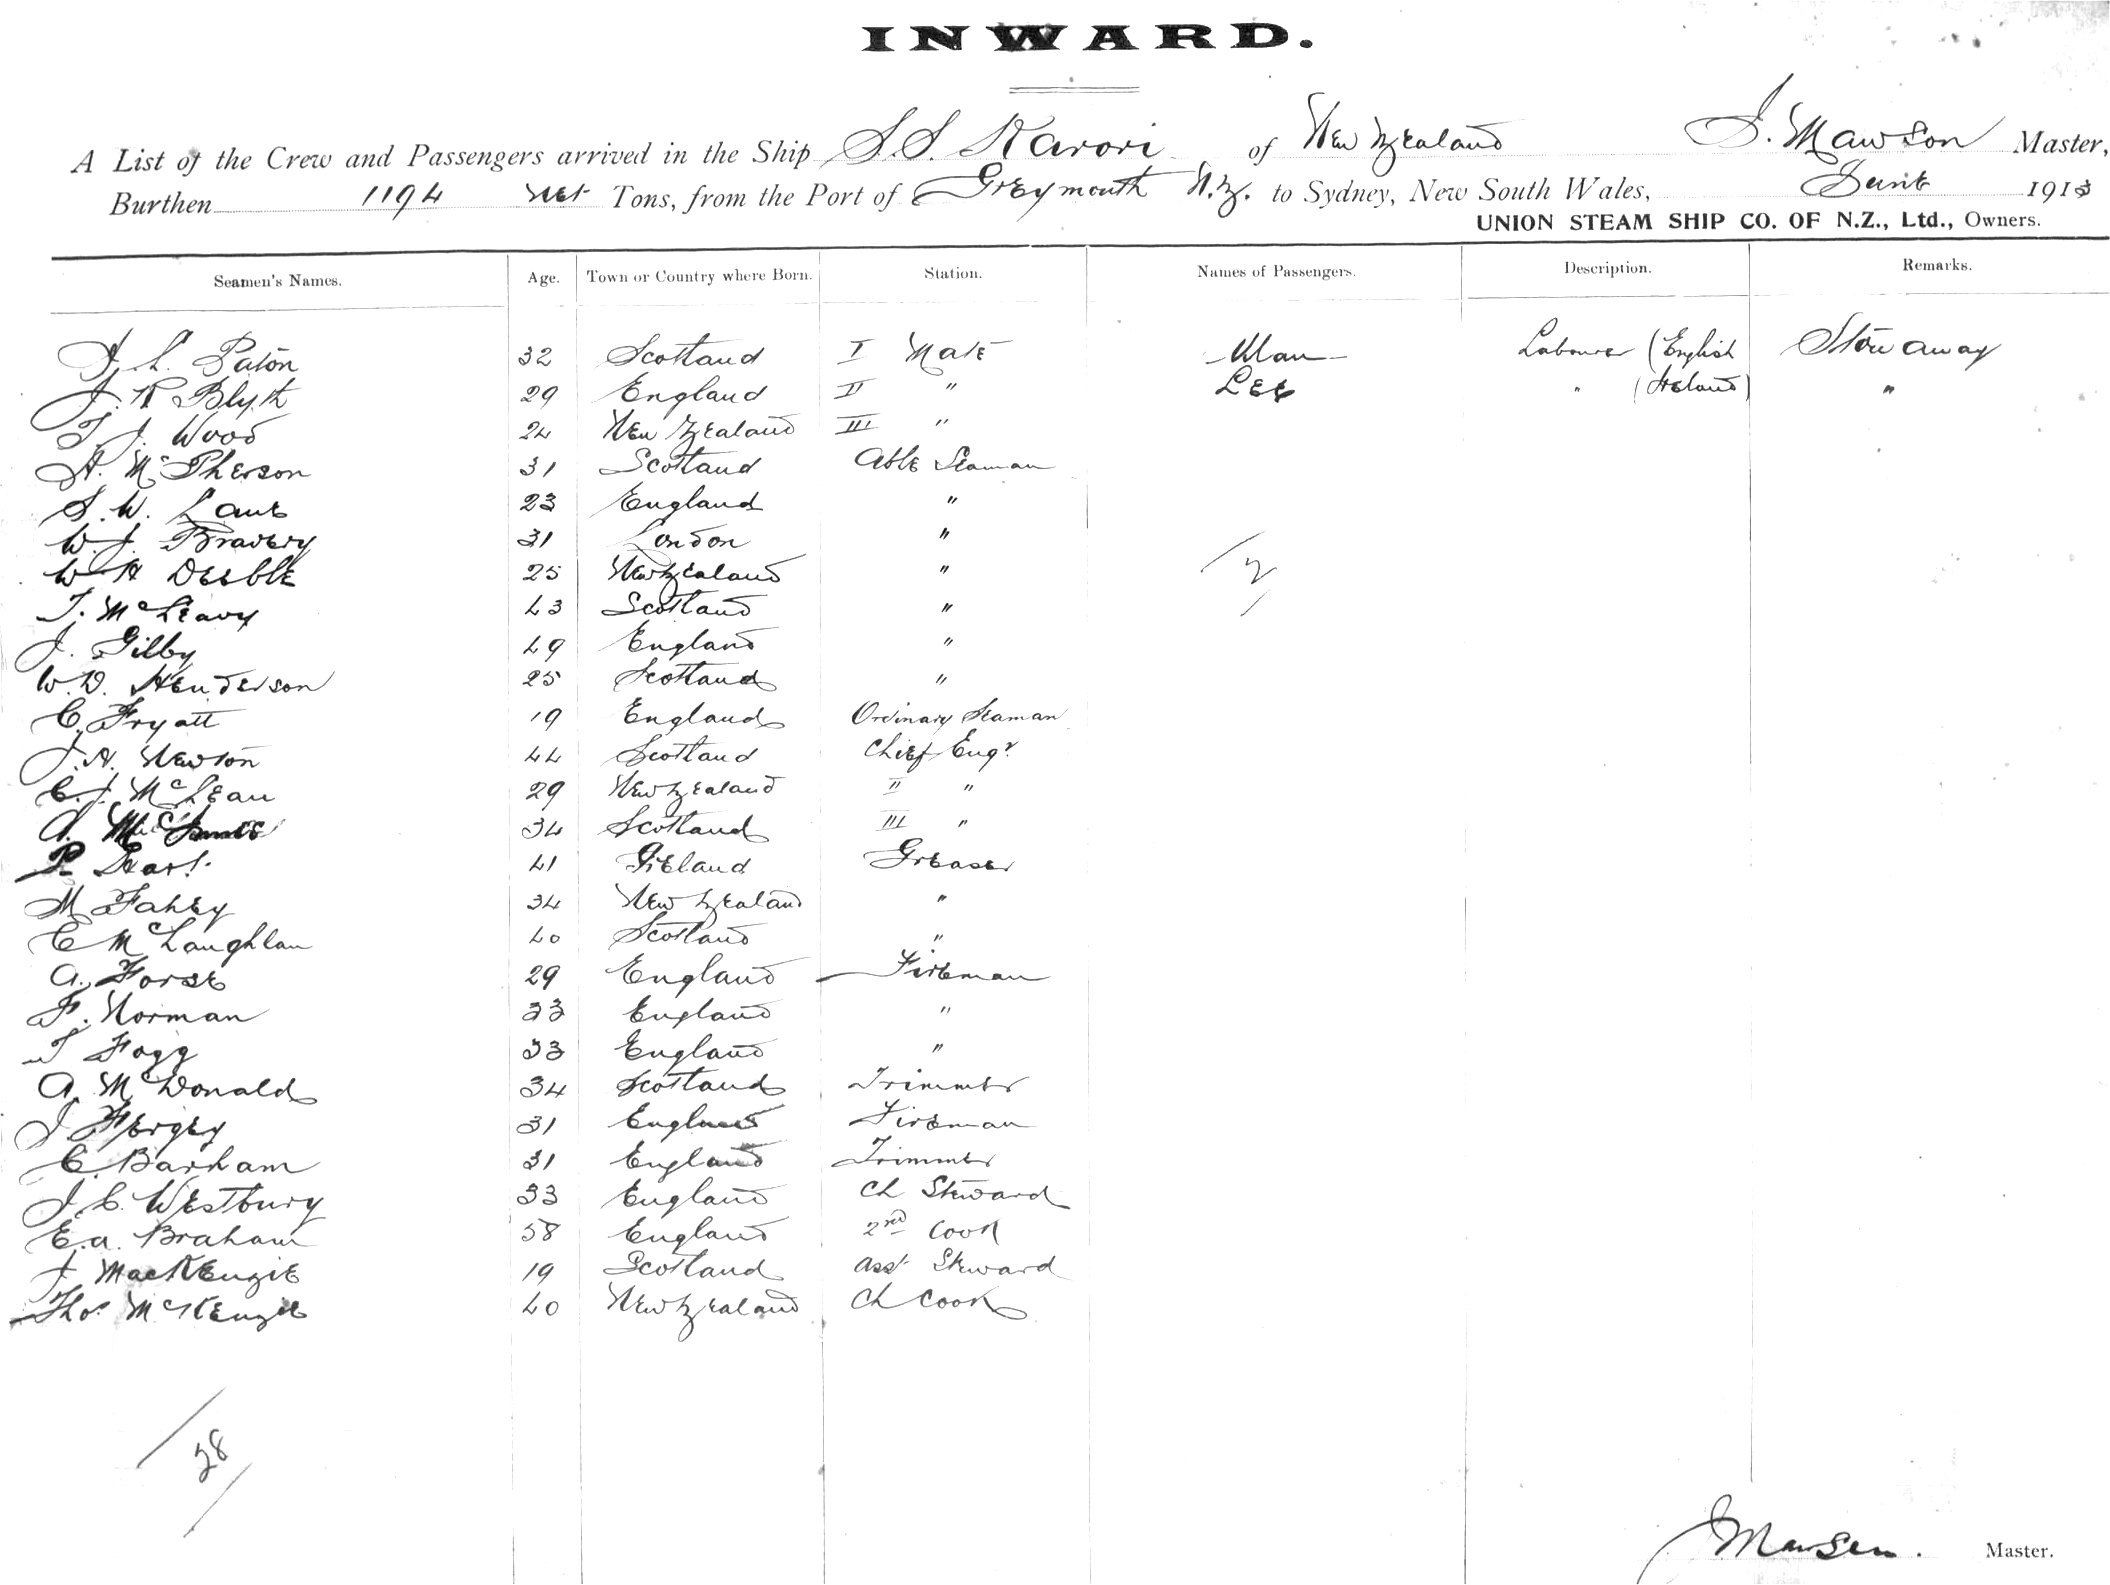 INWARD.
A List of the Crew and Passengers arrived in the Ship S.S. Karori of New Zealand J. Mawson Master,
Burthen 1194 net Tons, from the Port of Greymouth N.Z. to Sydney, New South Wales, June 1913
UNION STEAM SHIP CO. OF N.Z., Ltd., Owners.
Seamen's Names. Age. Town or Country where Born. Station. Names of Passengers. Description. Remarks.
J. L. Paton 32 Scotland I Mate Man Labourer (English Stowaway
J. K Blyth 29 England II " Lee " (Ireland) "
T. J. Wood 24 New Zealand III "
A. McPherson 31 Scotland Able Seaman
S. W. Lane 23 England "
W. J. Bravery 31 London "
W H Deeble 25 New Zealand "
T. McLeavy 43 Scotland "
J. Gilby 49 England "
W. D. Henderson 25 Scotland "
C. Fryatt 19 England Ordinary Seaman
J. H. Newton 44 Scotland Chief Engr
C. J. McLean 29 New Zealand II "
A. 34 Scotland III "
P. Hart 41 Ireland Greaser
M Fahey 34 New Zealand "
E McLaughlan 40 Scotland "
A. Forse 29 England Fireman
F. Norman 33 England "
T Fogg 33 England "
A. McDonald 34 Scotland Trimmer
J 31 England Fireman
C. Barham 31 England Trimmer
J. C. Westbury 33 England Ch Steward
E. A. Braham 58 England 2nd Cook
J MacKenzie 19 Scotland Asst Steward
Thos McKenzie 40 New Zealand Ch Cook
2
28
J Mawson. Master.